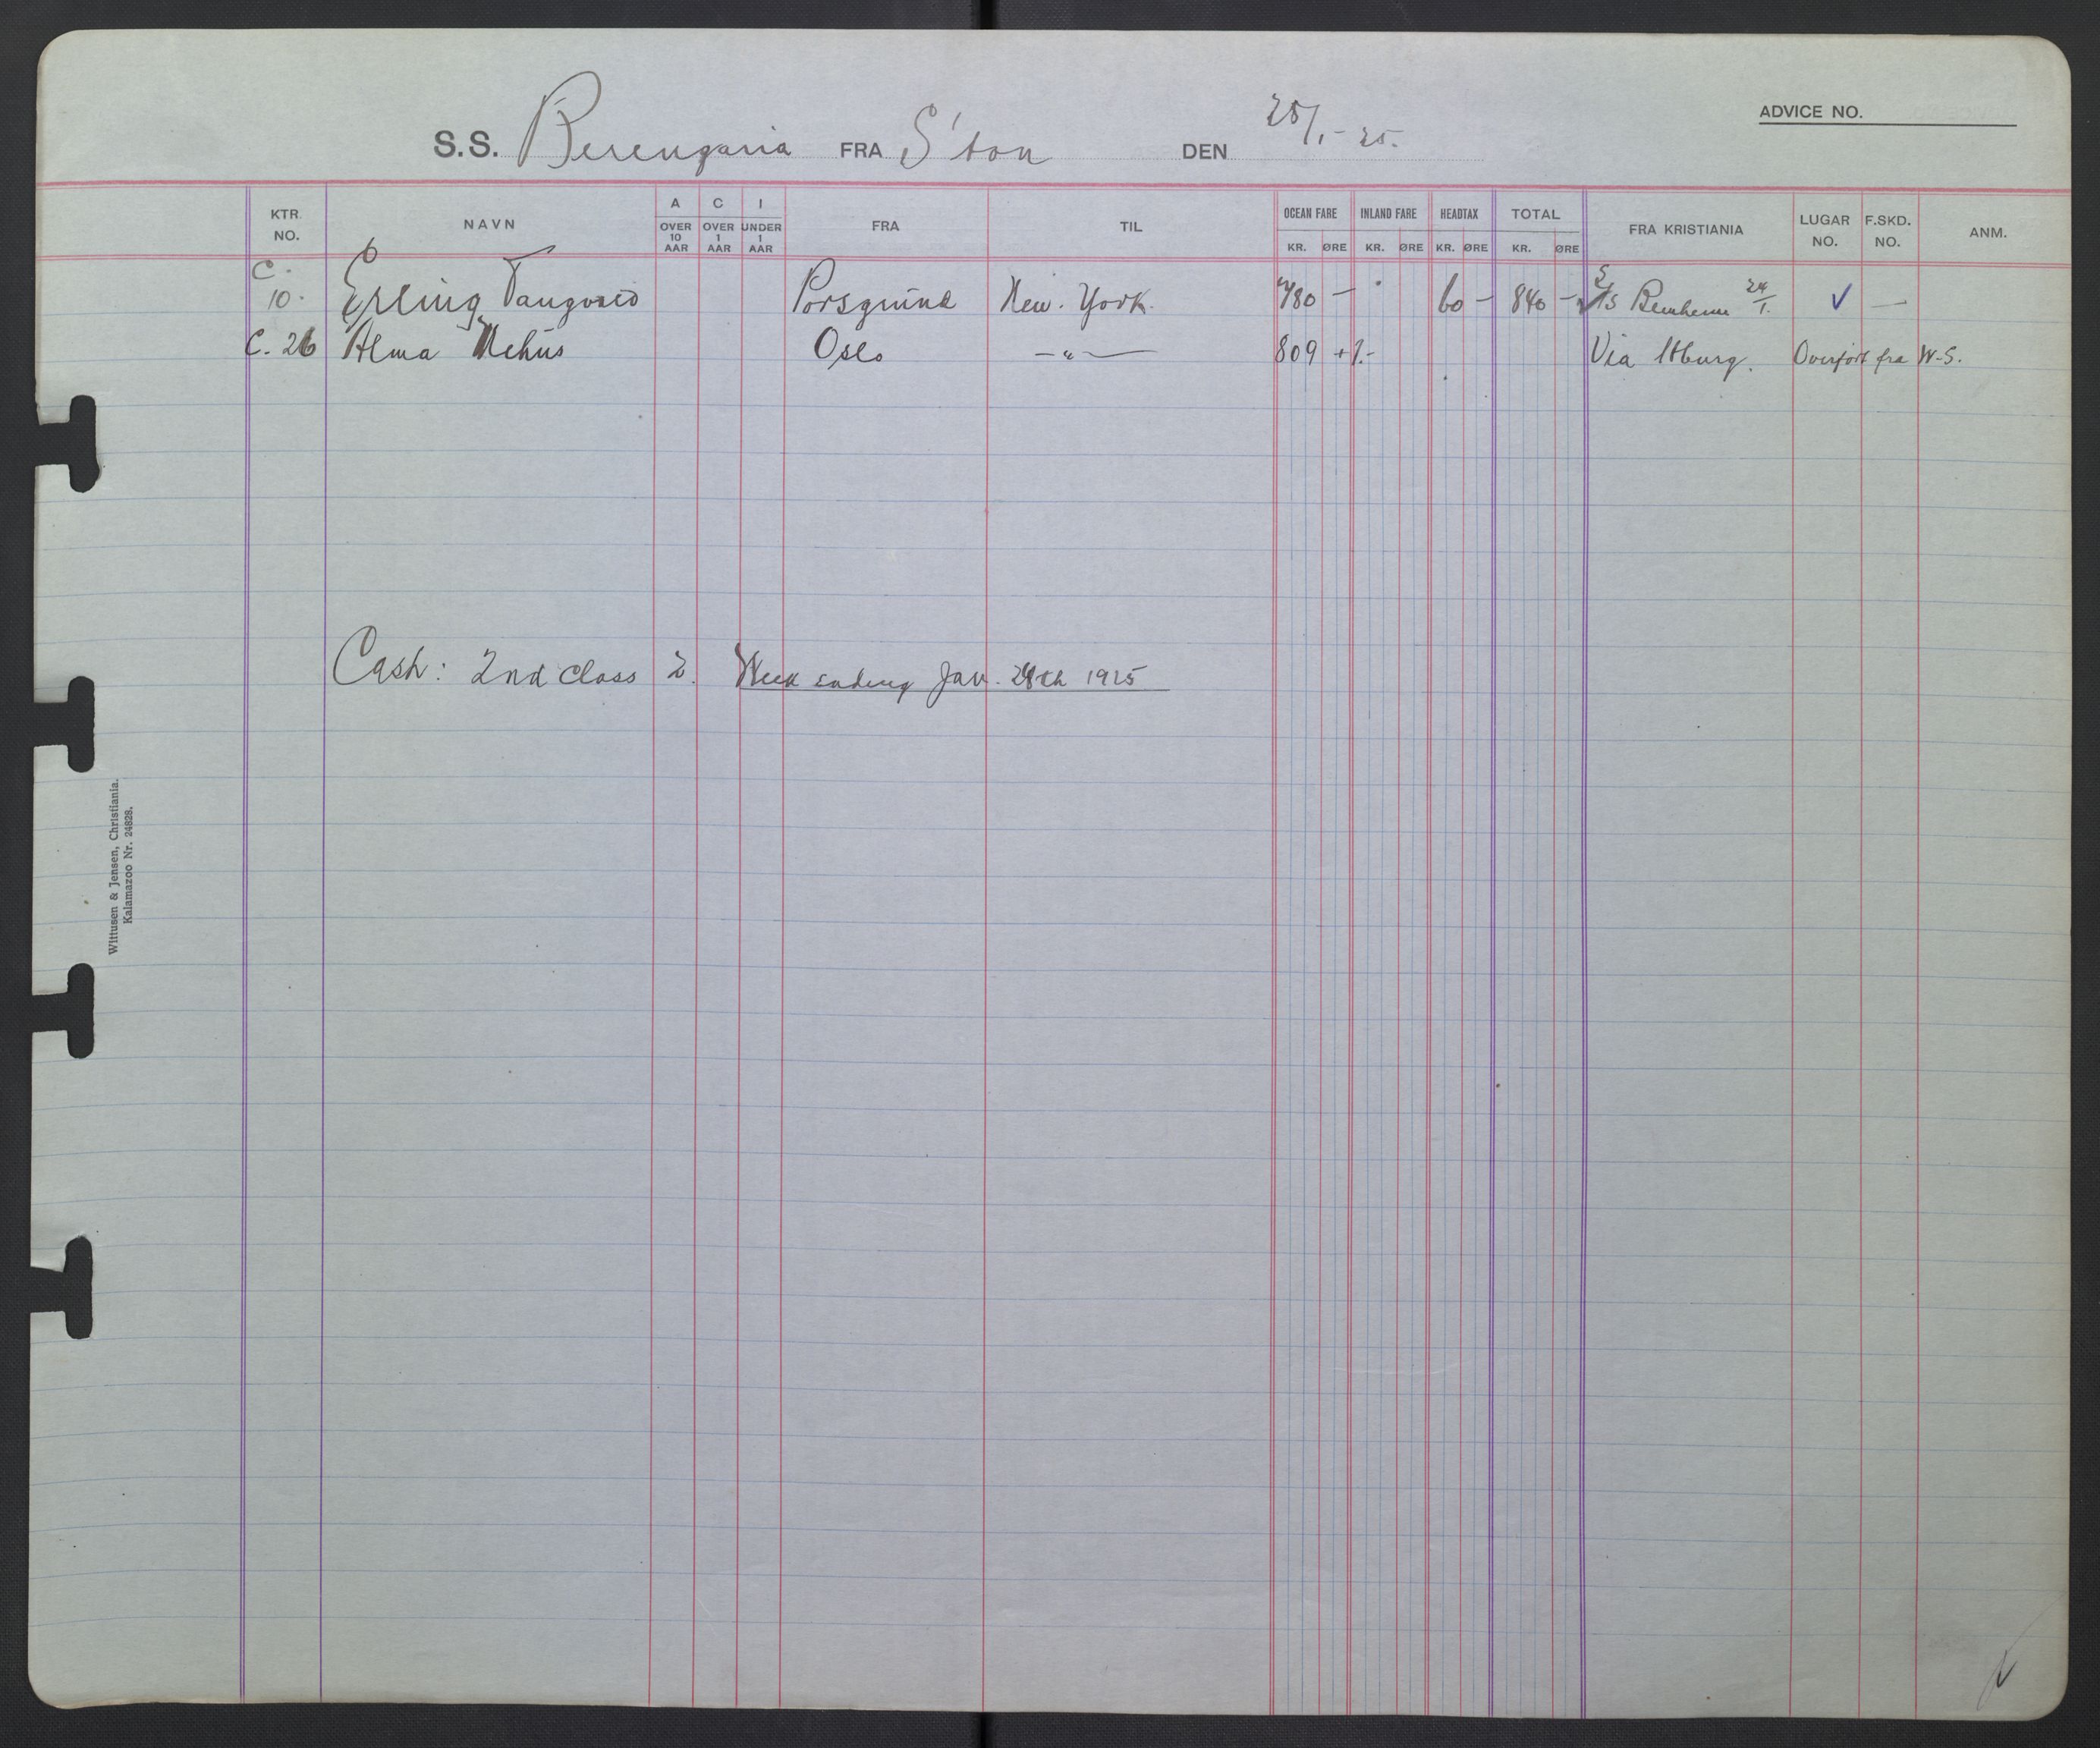 ADVICE NO.
S.S. Berengaria FRA S'ton DEN 28/1.- 25.
KTR. NO. NAVN A OVER 10 AAR C OVER 1 AAR I UNDER 1 AAR FRA TIL OCEAN FARE KR. ØRE INLAND FARE KR. ØRE HEADTAX KR. ØRE TOTAL KR. ØRE FRA KRISTIANIA LUGAR NO. F.SKD. NO. ANM.
C. 10. Erling Tangvald Porsgrund New. York. 780 — 60 — 840 — S/S 24/1. ✓ —
C. 26 Alma Nehus Oslo —"— 809 + 1.- Via Hburg. Overført fra W-S.
Cash: 2nd Class 2. Week ending Jan. 28th 1925
Wittusen & Jensen, Christiania.
Kalamazoo Nr. 24828.